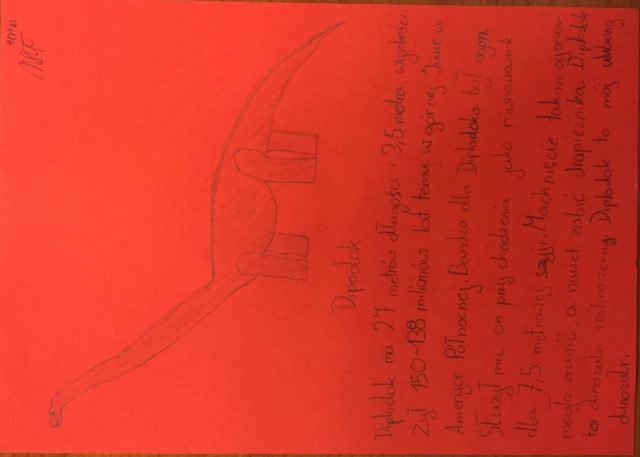 ADAM
Dipodok
Diplodok ma 27 metrów długości i 3,5 metra wysokości.
Żył 150-138 milionów lat temu w górnej Jurze w
Ameryce Północnej Bardzo dla Diplodoka był ogon.
Służył mu on przy chodzeniu jako równoważnik
dla 7,5 metrowej szyji. Machnięcie takim ogonem
mogło zranić, a nawet zabić drapieżnika. Diplodok
to dinozałr roślinożerny Diplodok to mój ulubiony
dinozałr.